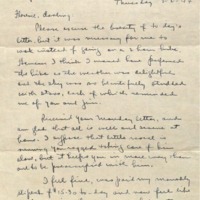 Thursday
Florrie, darling,
Please excuse the brevity of to-day's
letter, but it was necessary for me to
work instead of going on a 2 hour hike.
However I think I would have preferred
the hike as the weather was delightful
and the sky was so beautifully studded
with stars, each of which reminded
me of you and Jim.
Received your Monday letter, and
am glad that all is well and serene at
home. I suppose that
nursey you enjoyed taking care of him
, but it helped you in more ways than
one to be with him.
I feel fine, was paid my monthly
of $15.30 to-day and now feel like